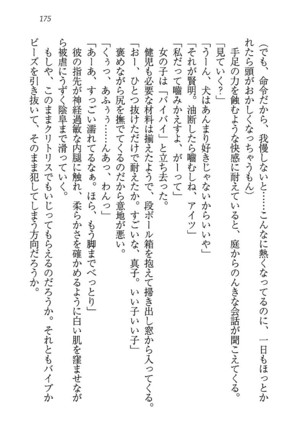 175
（でも、命令だから、我慢しないと……こんなに熱くなって、一日もほっとか
れたら頭がおかしくなっちゃうもん）
手足の力を蝕むような快感に耐えていると、庭からのんきな会話が聞こえてくる。
「見ていく？」
「うーん、犬はあんまり好きじゃないからいいや」
「それが賢明。油断したら噛むしね、アイツ」
「私だって噛みますよ、がーって」
女の子は「バイバイ」と立ち去った。
健児も必要な材料は揃えたようで、段ボール箱を抱えて掃き出し窓から入ってくる。
「あーあ、ひとつ抜けただけで耐えたか。すごいな、真子。いい子いい子」
褒めながら尻を撫でてくるのだから意地が悪い。
「くぅ、っ、あふぅ……んっ、あっ、わんっ」
「ああー、すっごい濡れてるなぁ。ほら、もう脚までべっとり」
彼の指先が神経過敏な内腿に触れ、柔らかさを確かめるように白い肌を窪ませなが
ら被虐にうずく陰阜まで滑っていく。
もしや、このままクリトリスでもいじってもらえるのだろうか。それともバイブか
ビーズを引き抜いて、そのまま犯してしまう方向だろうか。